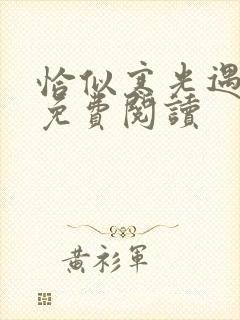 恰似寒光遇
免費閱讀
黃衫軍